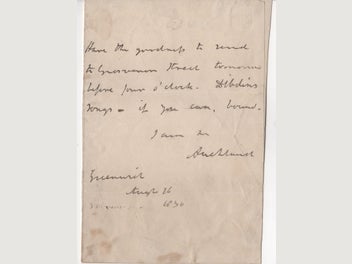 Have the goodness to send
to Grosvenor Street tomorrow
before four o'clock - Dibdins
Songs - if you can, bound.
I am &c
Auckland
Greenwich
Augt 26
1830